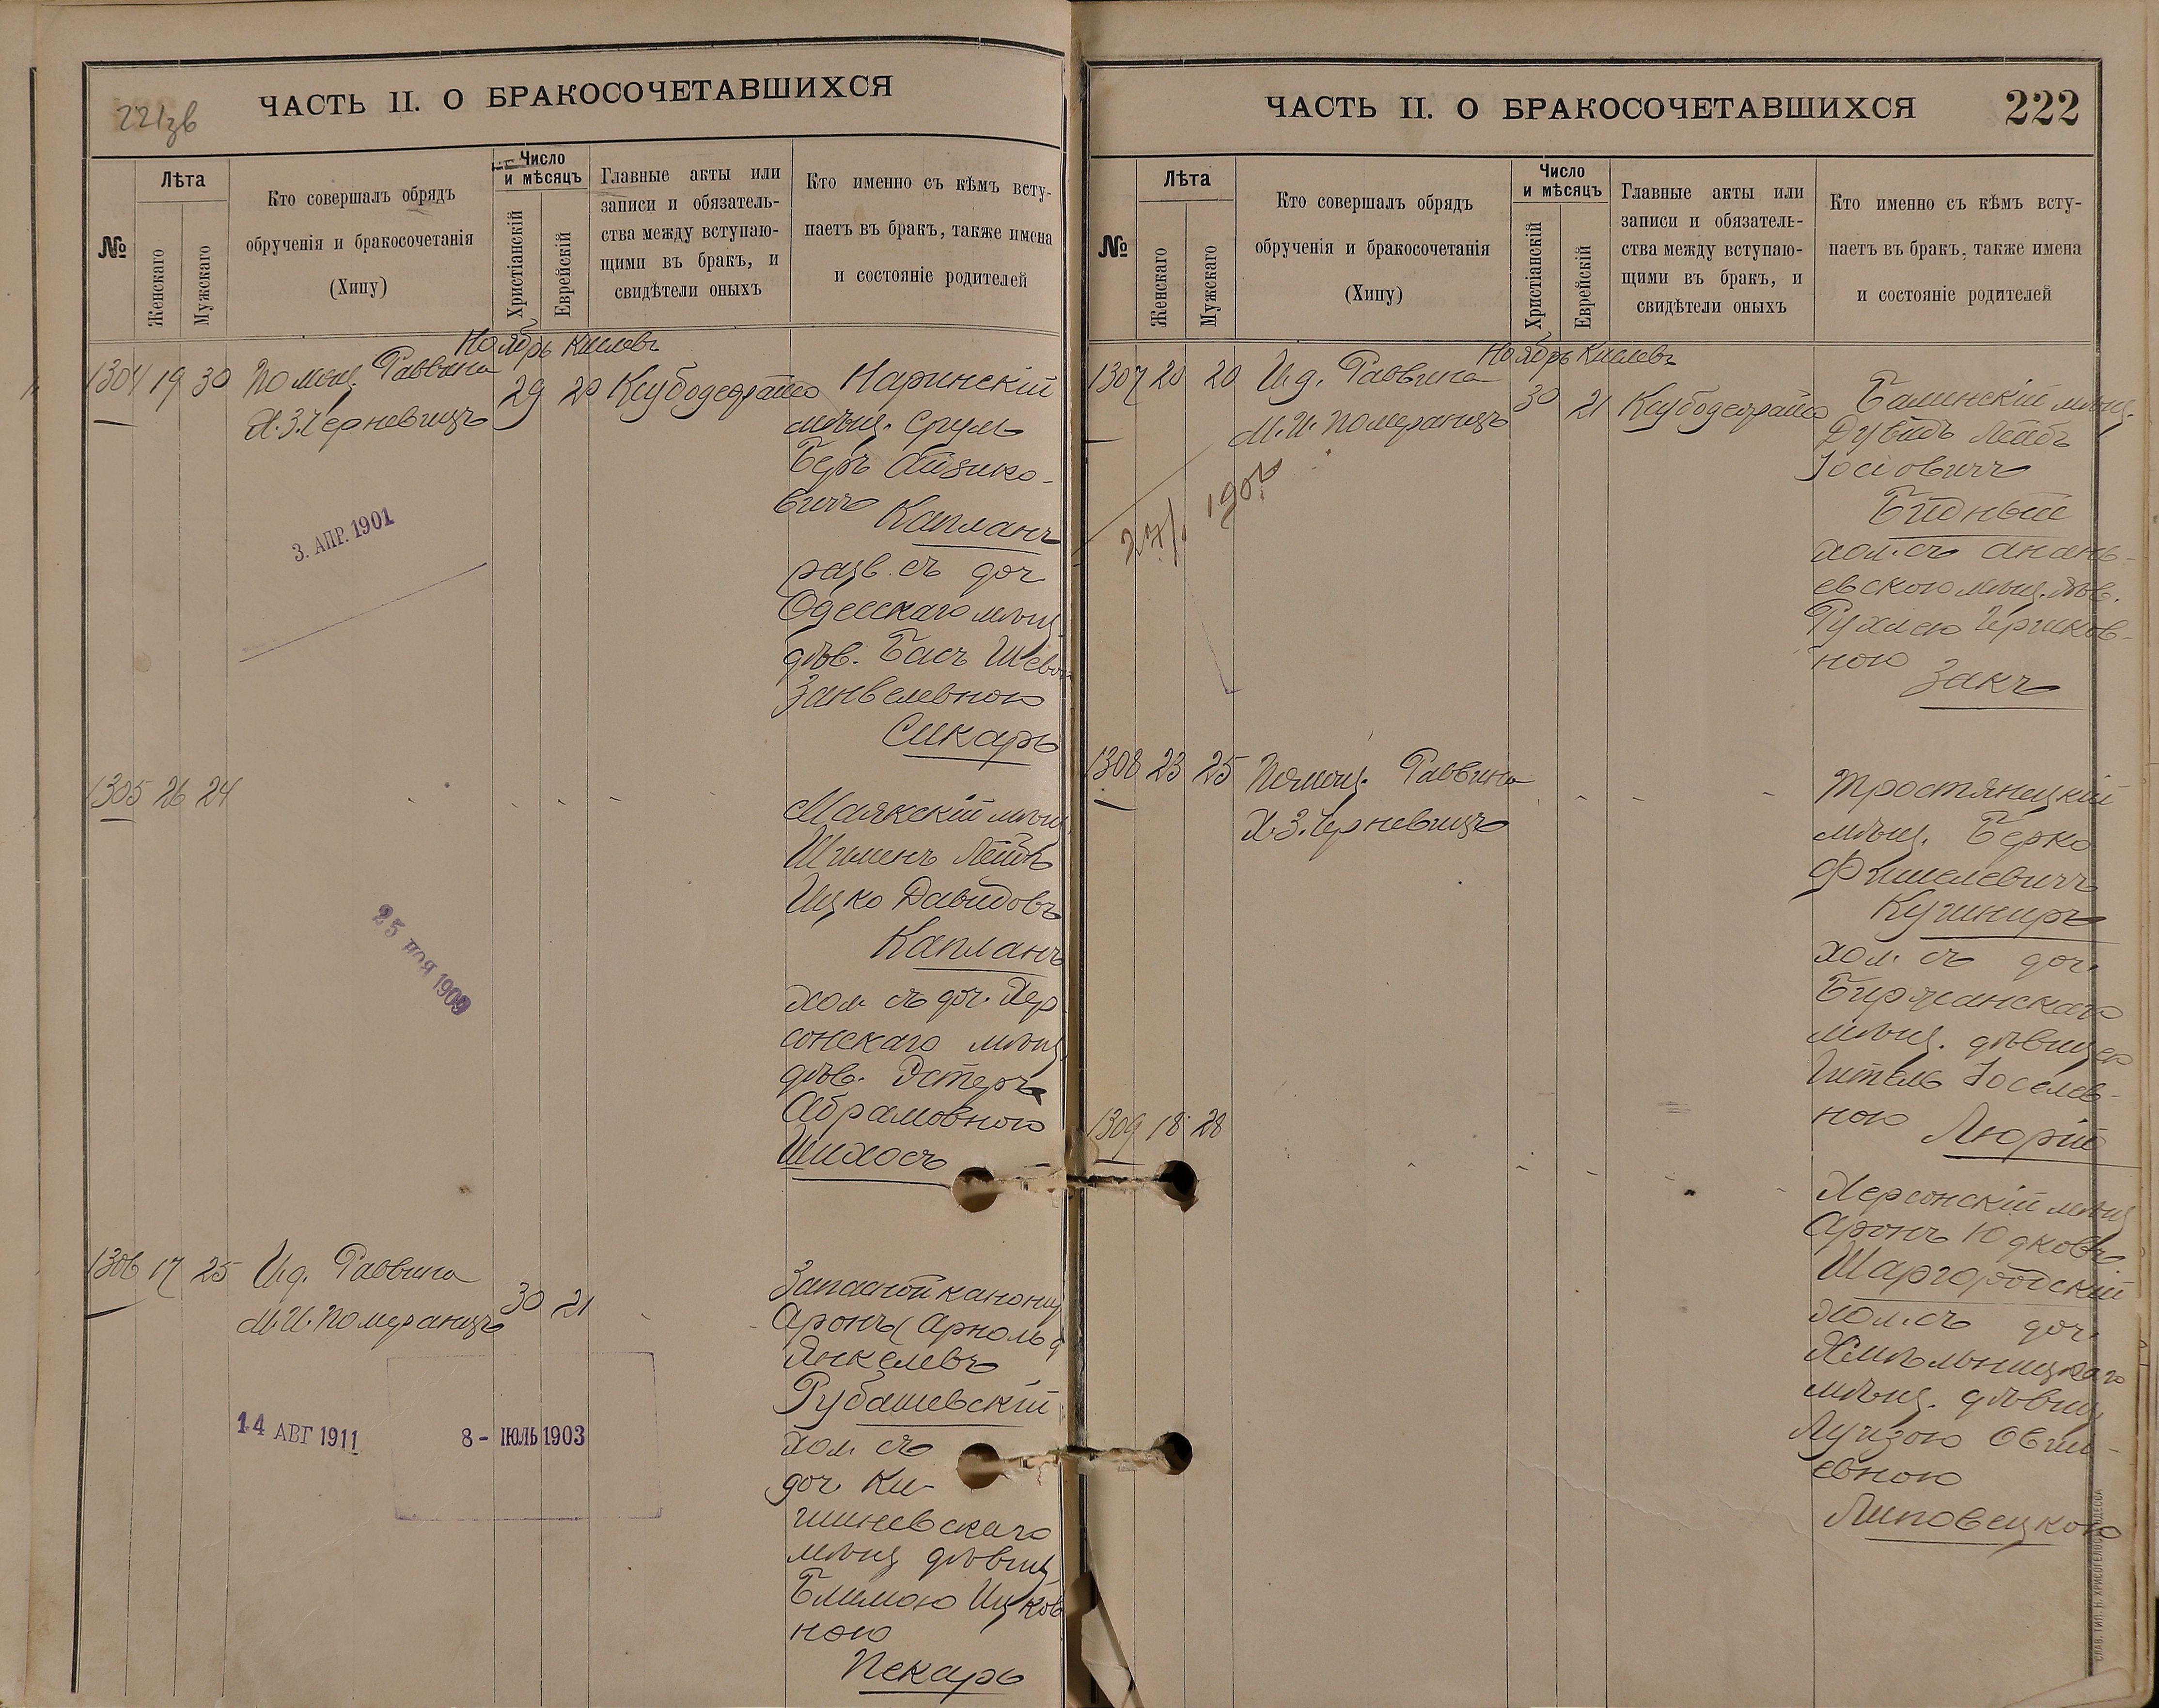 221зв
ЧАСТЬ II. О БРАКОСОЧЕТАВШИХСЯ
№
Лѣта
Женскаго
Мужскаго
Кто совершалъ обрядъ
обрученія и бракосочетанія
(Хипу)
Число
и мѣсяцъ
Христіанскій
Еврейскій
Главные акты или
записи и обязатель-
ства между вступаю-
щими въ бракъ, и
свидѣтели оныхъ
Кто именно съ кѣмъ всту-
паетъ въ бракъ, также имена
и состояніе родителей
Ноябрь Кислевъ
1304 19 30 Помощ. Раввина 29 20
Х.З. Черневицъ
Наринскій
мѣщ. Сруль
Беръ Айзико-
вичъ Капланъ
разв. съ доч
Одесскаго мѣщ
дѣв. Бася Шевой
Занвелевною
Сикаръ
3. АПР. 1901
1305 26 24
Маякскій мѣщ.
Шименъ Лейбъ
Ицко Давидовъ
Капланъ
хол съ доч. Хер
сонскаго мѣщ.
дѣв. Эстеръ
Абрамовною
Шихосъ
25 ноя 1909
1306 17 25 И.д. Раввина 30 21
М.И. Померанецъ
Запасной канони
Аронъ (Арнольд
Янкелевъ
Рубашевскій
хол съ
доч Ки-
шиневскаго
мѣщ дѣвиц
Блимою Ицков
ною
Пекаръ
14 АВГ 1911
8- ІЮЛЬ 1903
ЧАСТЬ II. О БРАКОСОЧЕТАВШИХСЯ
222
№
Лѣта
Женскаго
Мужскаго
Кто совершалъ обрядъ
обрученія и бракосочетанія
(Хипу)
Число
и мѣсяцъ
Христіанскій
Еврейскій
Главные акты или
записи и обязатель-
ства между вступаю-
щими въ бракъ, и
свидѣтели оныхъ
Кто именно съ кѣмъ всту-
паетъ въ бракъ, также имена
и состояніе родителей
Ноябрь Кислевъ
1307 20 20 И.д. Раввина 30 21
М.И. Померанецъ
Дувидъ Лейбъ
Іосіовичъ
Бидный
хол. съ Анань-
евскою мѣщ. дѣв.
Рухлею Чериков-
ною
Закъ
1308 23 25 Помощ. Раввина
Х.З. Черневицъ
Тростянецкій
мѣщ. Берко
Фишелевичъ
Кушниръ
хол. съ доч.
Бирзанскаго
мѣщ. дѣвицею
Гитель Іоселев-
ною Люрій
1309 18 28
Херсонскій мѣщ
Аронъ Юдковъ
Шаргородскій
хол. съ доч.
Хмѣльницкаго
мѣщ. дѣвиц
Луизою Овші-
евною
Липовецкою
СЛАВ. ТИП. Н. ХРИСОГЕЛОСЪ ОДЕССА